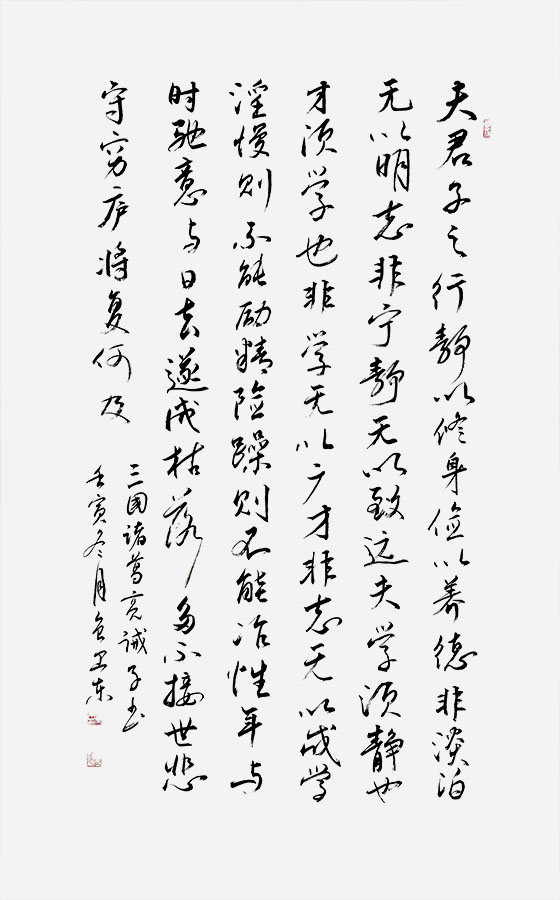 夫君子之行静以修身俭以养德非淡泊
无以明志非宁静无以致远夫学须静也
才须学也非学无以广才非志无以成学
淫慢则不能励精险躁则不能冶性年与
时驰意与日去遂成枯落多不接世悲
守穷庐将复何及
三国诸葛亮诫子书
壬寅冬月卫东